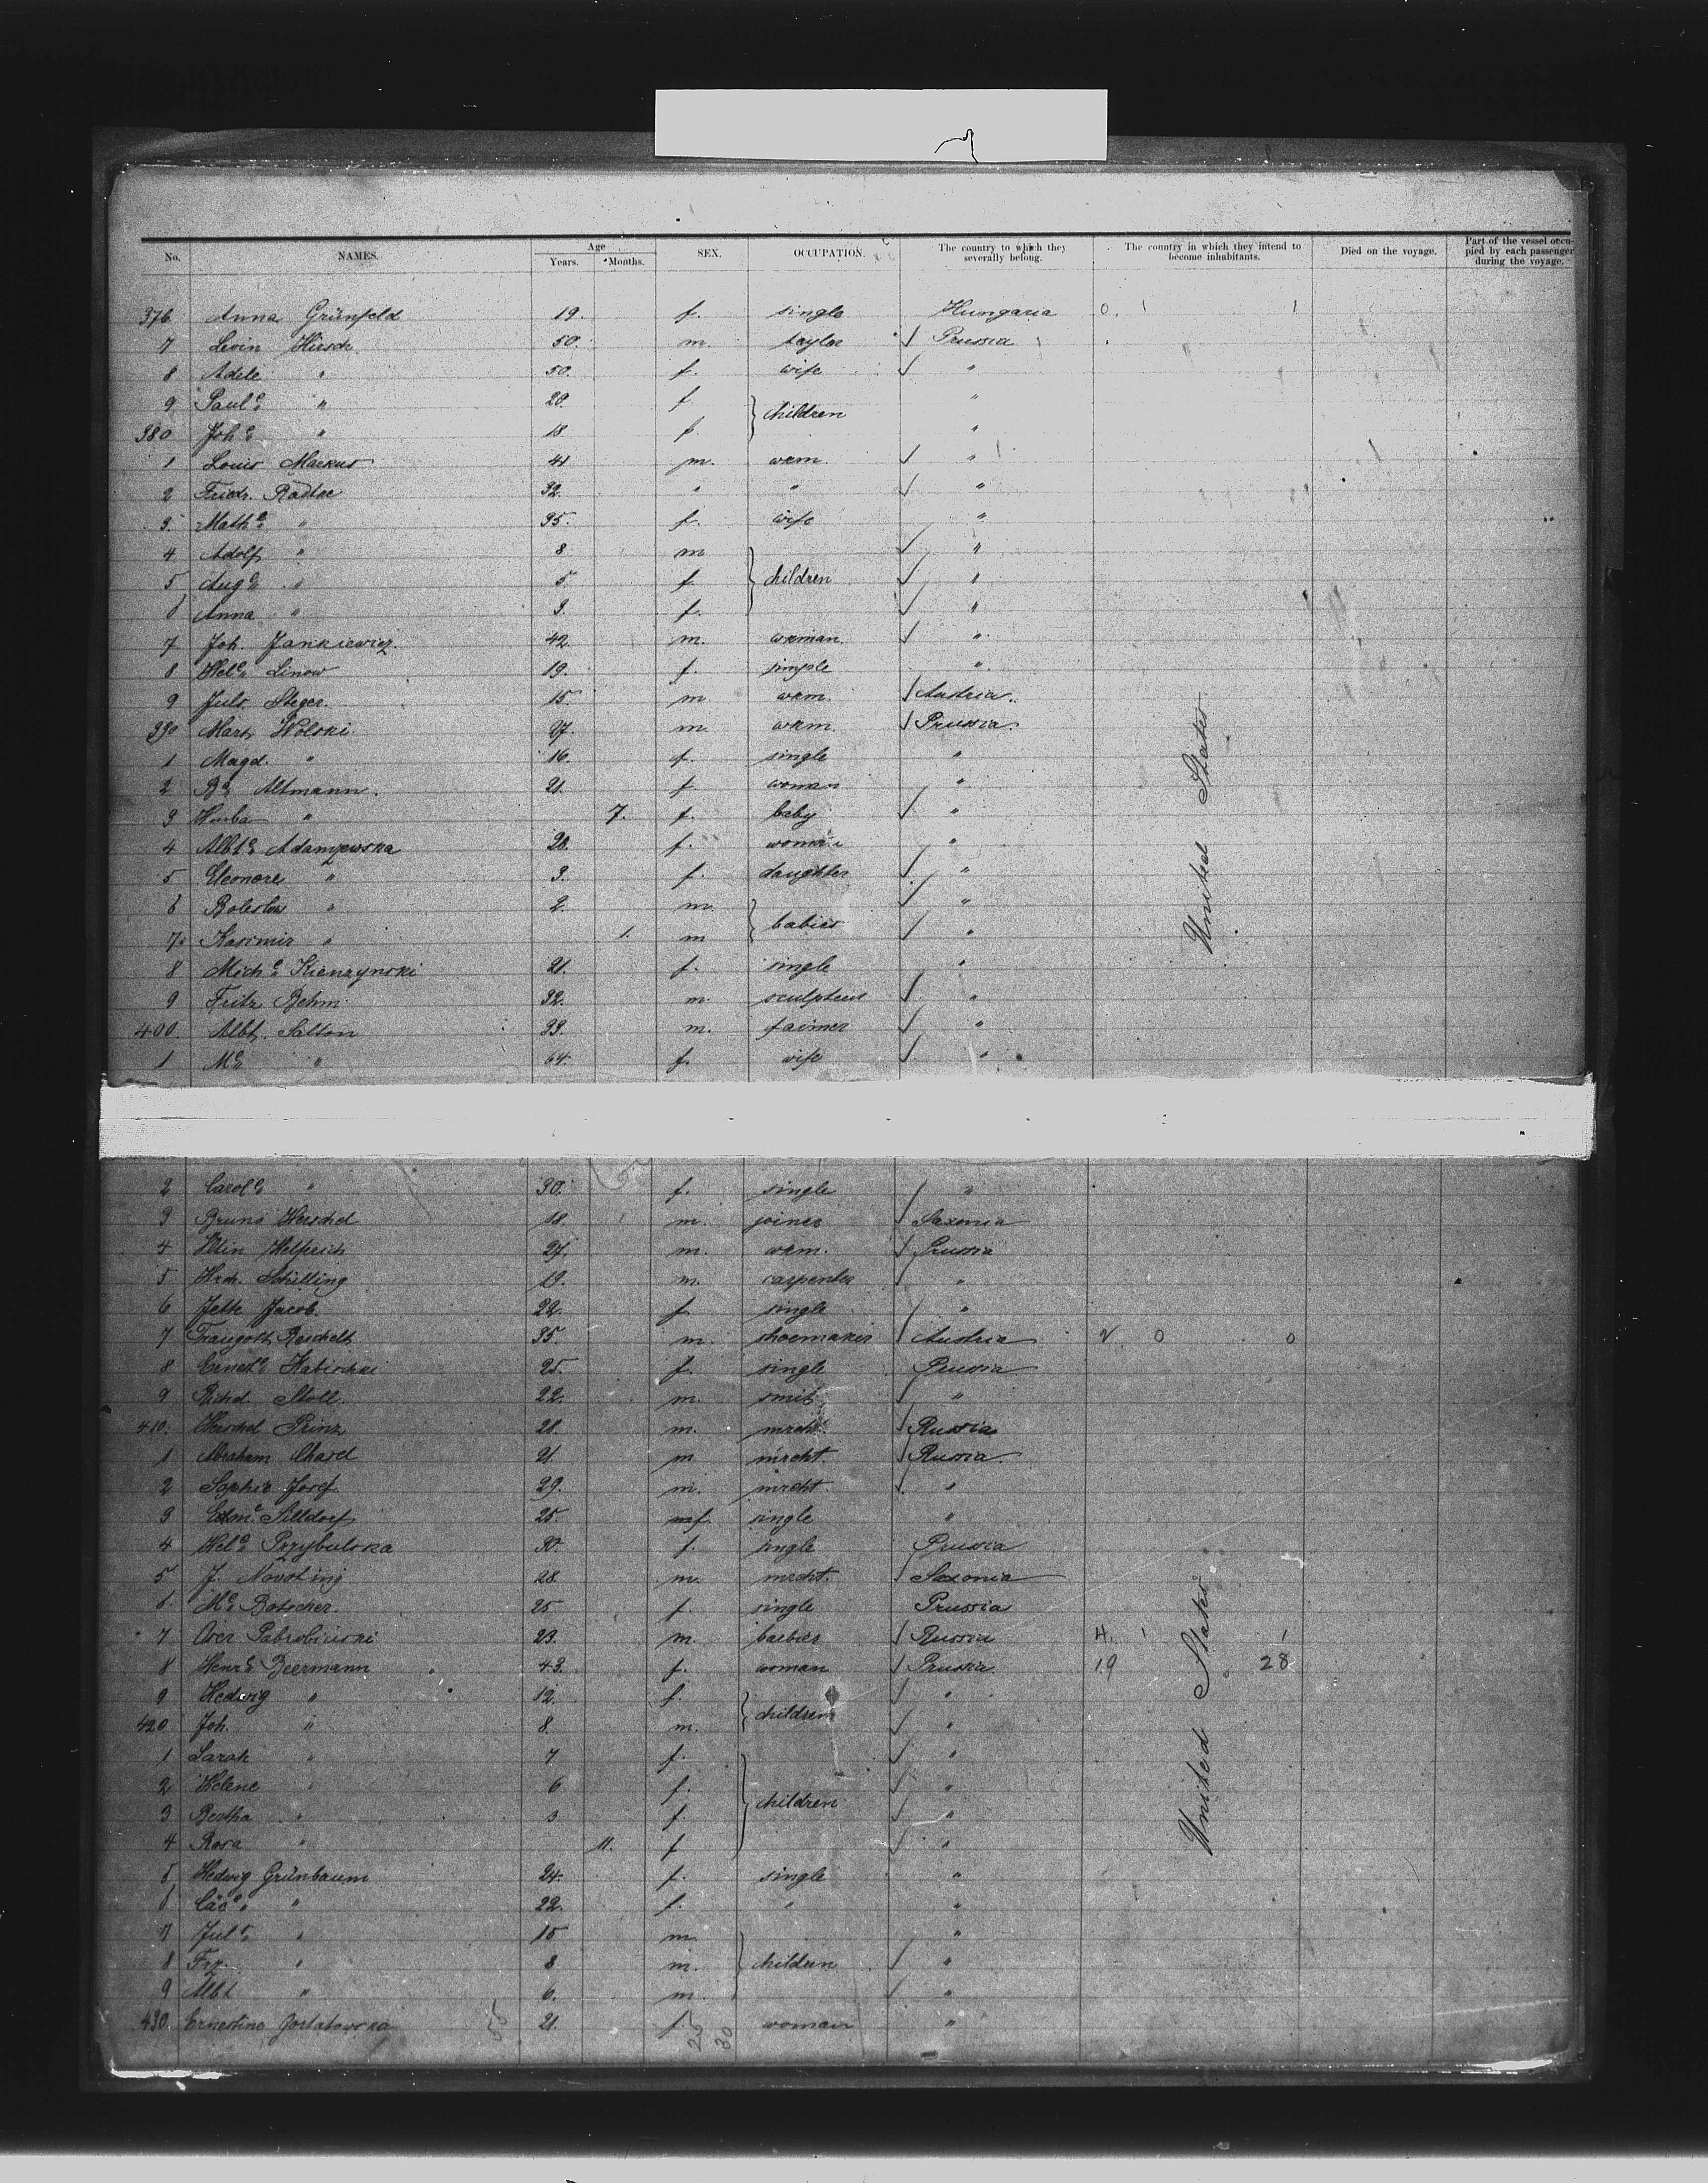 No. NAMES. Age Years. Months. SEX. OCCUPATION. The country to which they severally belong. The country in which they intend to become inhabitants. Died on the voyage. Part of the vessel occupied by each passenger during the voyage.
376 Anna Grünfeld 19. f. single Hungaria 0. 1 1
7 Levin Hirsch 50. m. taylor Prussia
8 Adele " 50. f. wife "
9 Paule " 20. f "
children
380 Johe " 18. f. "
1 Louis Markus 41 m. wkm. "
2 Friedr. Radtke 32. " " "
3. Mathe " 35. f. wife "
4 Adolf " 8 m "
5 Auge " 5 f. children "
6 Anna " 3. f. "
7 Joh. Jankiewicz. 42 m. wkman. "
8 Hele Linow 19. f. single "
9 Juls Steger. 15 m. wkm. Austria.
390 Mart. Wolski 27. m. wkm. Prussia.
1 Magd. " 16. f. single "
2 Be Altmann. 21. f woman "
3 " 7. f. baby "
4 Albte Adamzewska 28. f. woman "
5 Eleonore " 3. f. daughter "
6 Boleslav " 2. m. "
babies
7. Kasimir " 1. m "
8 Miche Kienzynski 21. f. single "
9 Fritz Behm 32. m. sculpteur "
400. Albt. Salton 33. m. farmer "
1 Me " 64. f. wife "
United States
2 Carole " 30. f. single "
3 Bruno Herschel 18. m. joiner Saxonia
4 Helfrich 27. m. wkm. Prussia
5 Hrch. Schilling 19. m. carpenter "
6 Jette Jacob. 22. f single "
7 Traugott Reschelt 35. m. shoemaker Austria 2 0 0
8 Erneste Habischki 25. f. single Prussia
9 Richd. Stoll. 22. m. smit "
410. Herschel Prinz 28. m. mrcht. Russia
1 Abraham Chard 21. m mrcht. Russia
2 Sophir Josef 29. m. mrcht. "
3 Silldorf 25. f. single "
4 Hele Przybulska 30. f. single Prussia
5 J. Novoting 28. m. mrcht. Saxonia
6. Me Botscher. 25 f. single Prussia
7 23. m. barbier Russia 4. 1 1
8 Henre Beermann 43. f. woman Prussia 19 28
9 Hedwig " 12. f. "
children
420 Joh. " 8. m. "
1 Sarah " 7 f. "
2 Helene " 6 f. "
children
3 Bertha " 3 f. "
4 Rosa " 11. f "
5 Hedwig Grünbaum 24. f. single "
6 Cäce " 22. f. " "
7 Juls " 15 m "
8 Frz. " 8 m. children "
9 Albt " 6. m. "
430. Ernestine Jostatowska 21. f. woman "
United States
55 25 30